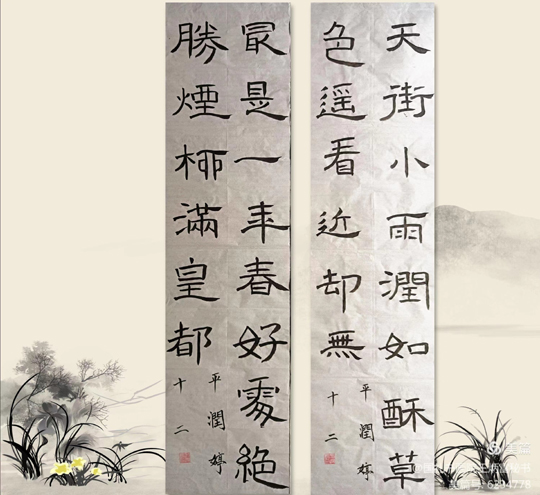 天街小雨潤如酥草
色遥看近却無
平潤婷
十二
最是一年春好處絕
勝煙柳滿皇都
平潤婷
十二
美篇
美篇号: 6294778